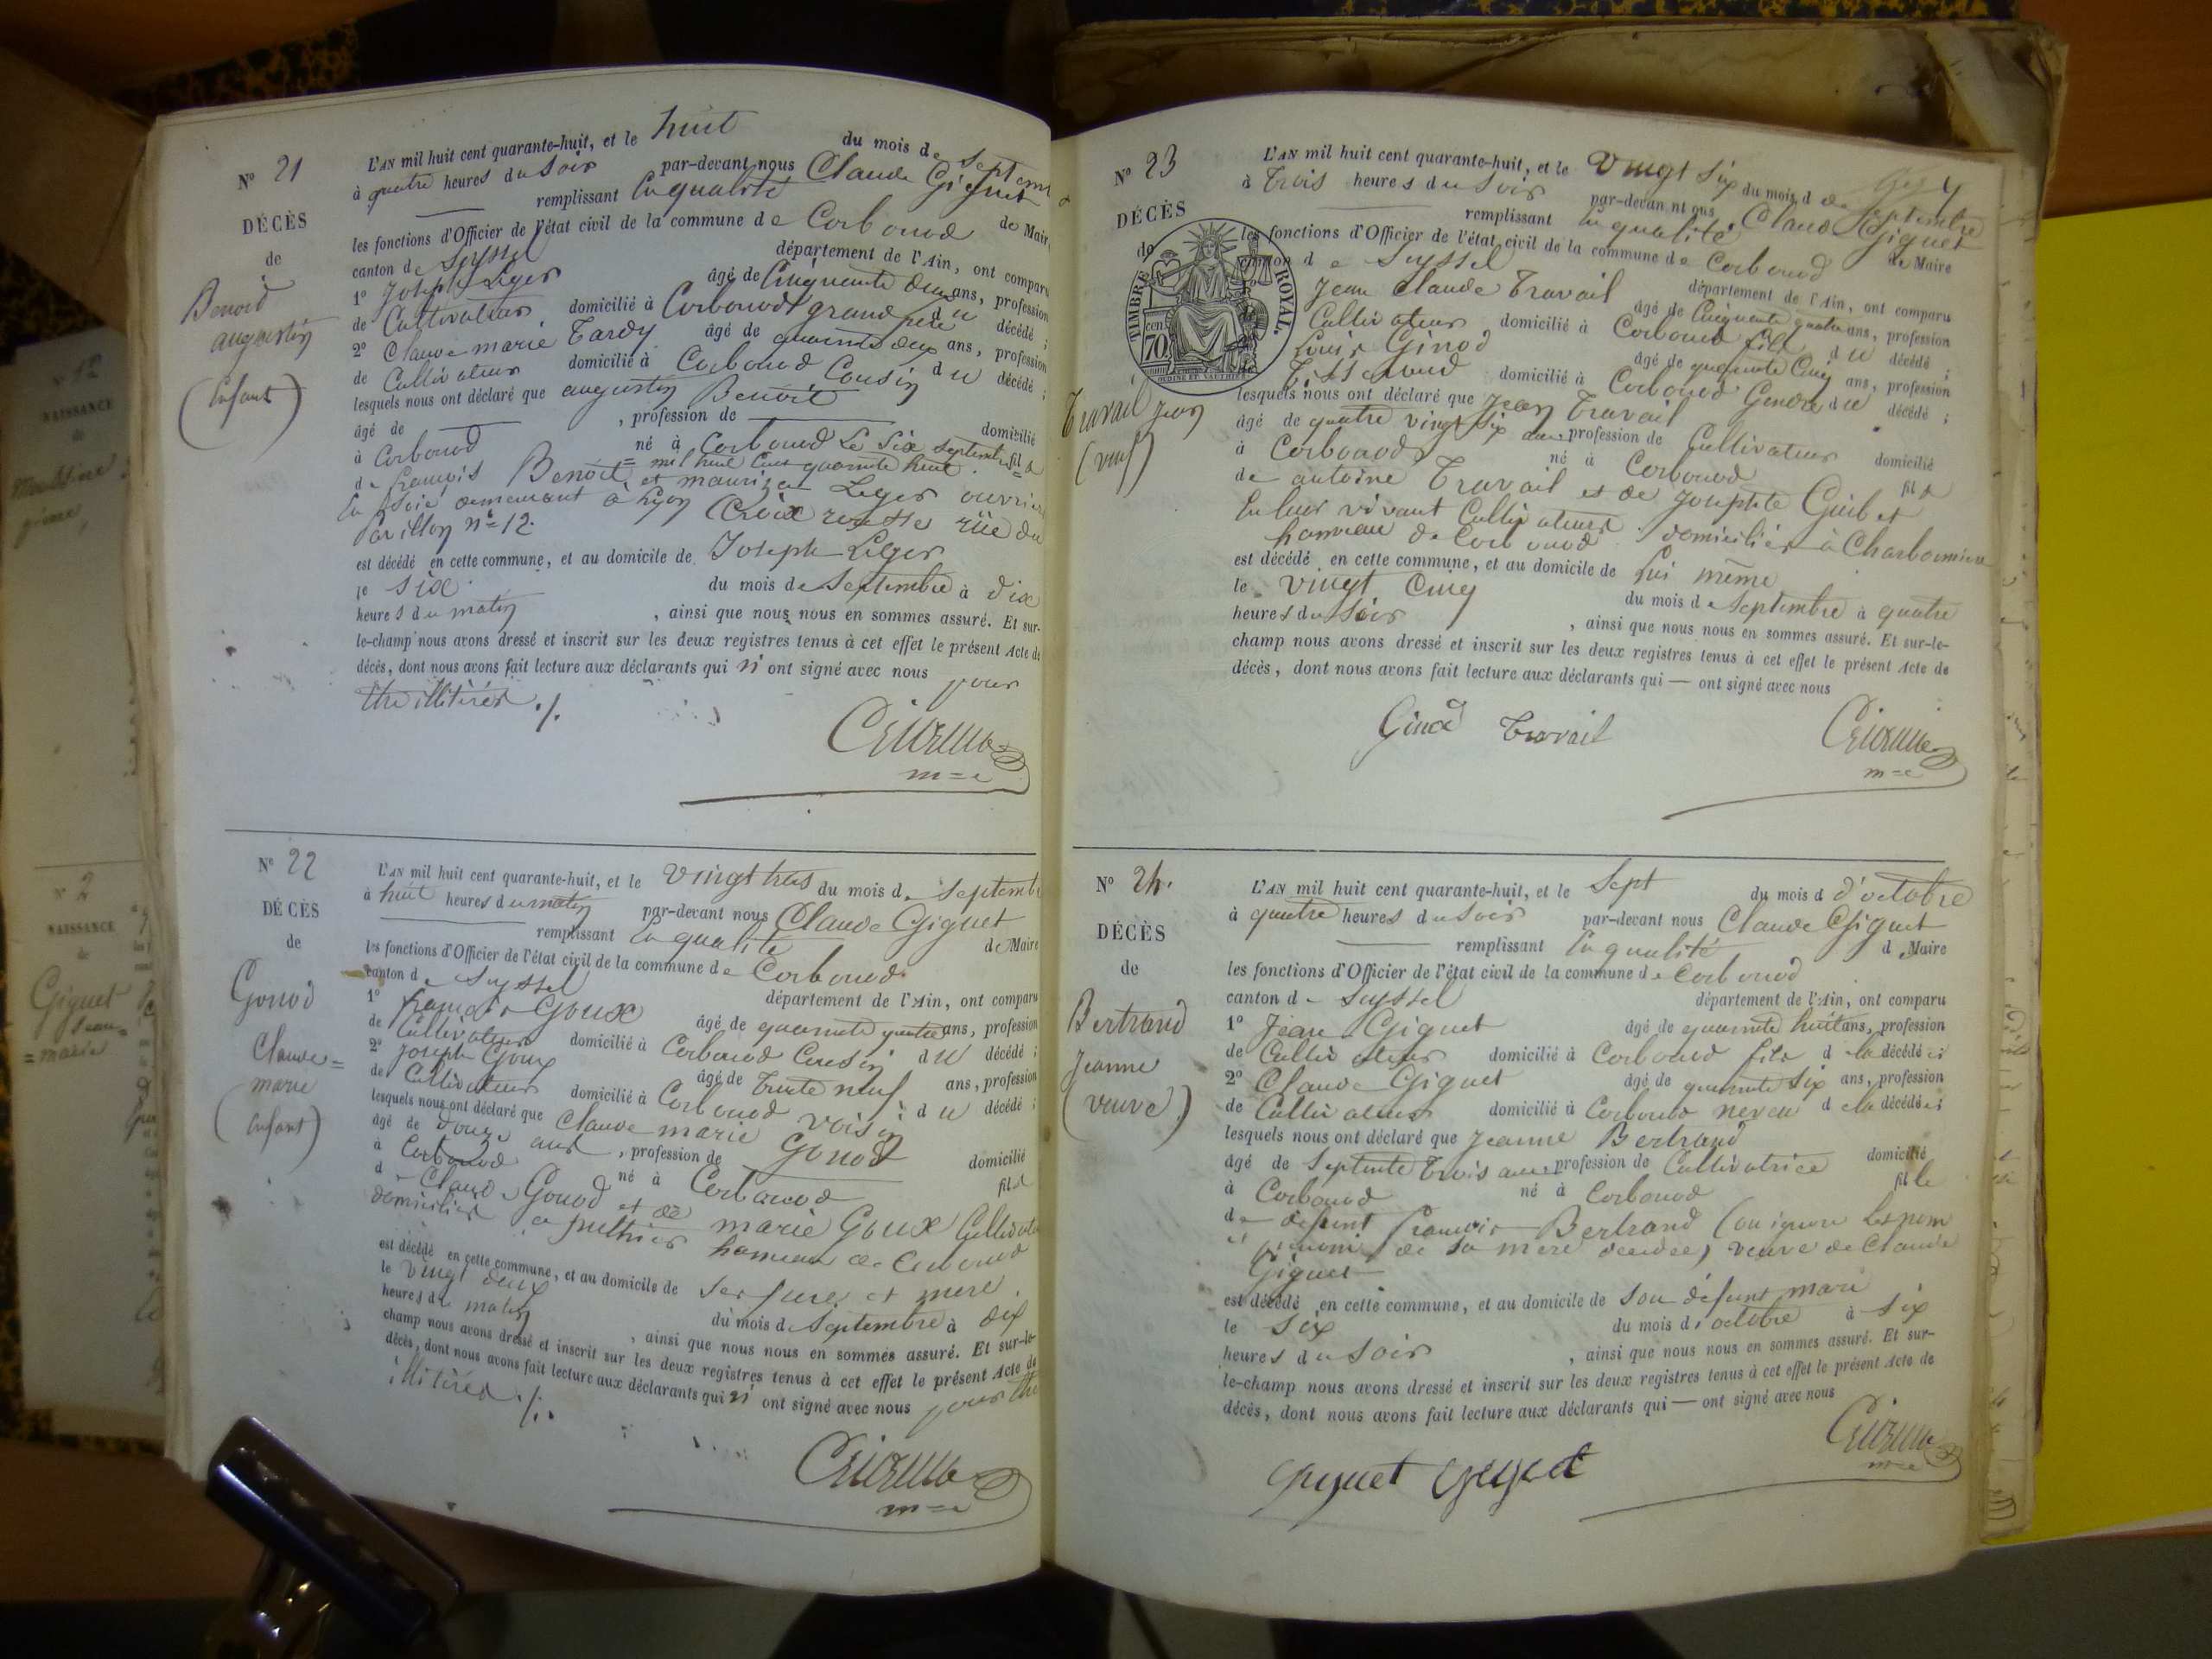 N° 21
DÉCÈS
de
Benoid
augustin
(Enfant)
L'AN mil huit cent quarante-huit, et le huit du mois de Septembre
à quatre heures du Soir par-devant nous Claude Giguet
remplissant en qualité de Maire
les fonctions d'Officier de l'état civil de la commune de Corbonod
canton de Seyssel département de l'Ain, ont comparu
1° Joseph Leger âgé de Cinquante deux ans, profession
de Cultivateur domicilié à Corbonod grand père du décédé ;
2° Claude marie Tardy âgé de quarante deux ans, profession
de Cultivateur domicilié à Corbonod Cousin du décédé ;
lesquels nous ont déclaré que augustin Benoit
âgé de , profession de domicilié
à Corbonod né à Corbonod Le Six Septembre fils
= mil huit Cent quarante huit
de françois Benoit et maurizea Leger ouvriers
En Soie demeurant à Lyon Croix rousse rüe du
Pavillon N° 12.
est décédé en cette commune, et au domicile de Joseph Leger
le Six du mois de Septembre à dix
heures du matin , ainsi que nous nous en sommes assuré. Et sur-
le-champ nous avons dressé et inscrit sur les deux registres tenus à cet effet le présent Acte de
décès, dont nous avons fait lecture aux déclarants qui n' ont signé avec nous pour
être illitérés ./.
m=e
N° 22
DÉCÈS
de
Gonod
Claude =
marie
(Enfant)
L'AN mil huit cent quarante-huit, et le vingt trois du mois de Septembre
à huit heures du matin par-devant nous Claude Giguet
remplissant En qualité de Maire
les fonctions d'Officier de l'état civil de la commune de Corbonod
canton de Seyssel département de l'Ain, ont comparu
1° françois Goux âgé de quarante quatre ans, profession
de Cultivateur domicilié à Corbonod Cousin du décédé ;
2° Joseph Goux âgé de Trente neuf ans, profession
de Cultivateur domicilié à Corbonod voisin du décédé ;
lesquels nous ont déclaré que Claude marie Gonod
âgé de douze ans , profession de domicilié
à Corbonod né à Corbonod fils
de Claude Gonod et de marie Goux Cultivateurs
domiciliés à hameau de Corbonod
est décédé en cette commune, et au domicile de Ses père et mère
le vingt deux du mois de Septembre à dix
heures du matin , ainsi que nous nous en sommes assuré. Et sur-le-
champ nous avons dressé et inscrit sur les deux registres tenus à cet effet le présent Acte de
décès, dont nous avons fait lecture aux déclarants qui n' ont signé avec nous pour être
illitérés ./.
m=e
N° 23
DÉCÈS
de
TIMBRE ROYAL.
70 cen
Travail jean
(veuf)
L'AN mil huit cent quarante-huit, et le vingt Six du mois de Septembre
à Trois heures du Soir par-devan nt ous Claude Giguet
remplissant En qualité de Maire
les fonctions d'Officier de l'état civil de la commune de Corbonod
canton de Seyssel département de l'Ain, ont comparu
Jean Claude Travail âgé de Cinquante quatre ans, profession
Cultivateur domicilié à Corbonod fils du décédé ;
Louis Ginod âgé de quarante Cinq ans, profession
Tisserand domicilié à Corbonod Gendre du décédé ;
lesquels nous ont déclaré que Jean Travail
âgé de quatre vingt Six ans profession de Cultivateur domicilié
à Corbonod né à Corbonod fils
de antoine Travail et de Josephte Guibet
En leur vivant Cultivateurs domiciliés à Charbonnière
hameau de Corbonod
est décédé en cette commune, et au domicile de Lui même
le vingt Cinq du mois de Septembre à quatre
heures du Soir , ainsi que nous nous en sommes assuré. Et sur-le-
champ nous avons dressé et inscrit sur les deux registres tenus à cet effet le présent Acte de
décès, dont nous avons fait lecture aux déclarants qui — ont signé avec nous
Ginod Travail
m=e
N° 24.
DÉCÈS
de
Bertrand
Jeanne
(veuve)
L'AN mil huit cent quarante-huit, et le Sept du mois d d'octobre
à quatre heures du Soir par-devant nous Claude Giguet
remplissant En qualité de Maire
les fonctions d'Officier de l'état civil de la commune de Corbonod
canton de Seyssel département de l'Ain, ont comparu
1° Jean Giguet âgé de quarante huit ans, profession
de Cultivateur domicilié à Corbonod fils de la décédée ;
2° Claude Giguet âgé de quarante Six ans, profession
de Cultivateur domicilié à Corbonod neveu de la décédée ;
lesquels nous ont déclaré que Jeanne Bertrand
âgé de Septante Trois ans profession de Cultivatrice domicilié
à Corbonod né à Corbonod fille
de défunt françois Bertrand (on ignore Les nom
et prénoms de sa mère décédée) veuve de Claude
Giguet
est décédé en cette commune, et au domicile de Son défunt mari
le Six du mois d'octobre à Six
heures du Soir , ainsi que nous nous en sommes assuré. Et sur-
le-champ nous avons dressé et inscrit sur les deux registres tenus à cet effet le présent Acte de
décès, dont nous avons fait lecture aux déclarants qui — ont signé avec nous
Giguet Giguet
m=e
N° 12
NAISSANCE
de
N° 2
NAISSANCE
de
Giguet
Jean=
=marie